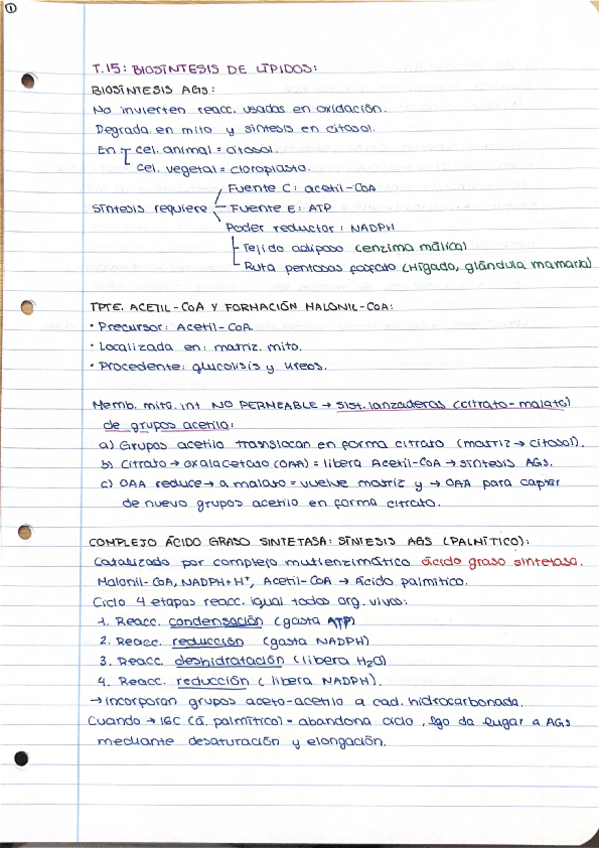 1
T.15: BIOSÍNTESIS DE LÍPIDOS:
BIOSÍNTESIS AGs:
No invierten reacc. usadas en oxidación.
Degrada en mito y síntesis en citosol.
En cel. animal = citosol.
cel. vegetal = cloroplasto.
Fuente C: acetil-CoA
Síntesis requiere Fuente E: ATP
Poder reductor: NADPH
Tejido adiposo (enzima málica)
Ruta pentosas fosfato (Hígado, glándula mamaria)
TPTE. ACETIL-CoA Y FORMACIÓN MALONIL-CoA:
• Precursor: Acetil-CoA
• Localizada en: matriz mito.
• Procedente: glucolisis y
Memb. mito. int NO PERMEABLE → sist. lanzaderas (citrato-malato)
de grupos acetilo:
a) Grupos acetilo translocan en forma citrato (matriz → citosol).
b) Citrato → oxalacetado (OAA) = libera Acetil-CoA → síntesis AGs.
c) OAA reduce → a malato = vuelve matriz y → OAA para captar
de nuevo grupos acetilo en forma citrato.
COMPLEJO ÁCIDO GRASO SINTETASA: SÍNTESIS AGS (PALMÍTICO):
Catalizado por complejo multienzimático ácido graso sintetasa.
Malonil-CoA, NADPH+H⁺, Acetil-CoA → Ácido palmítico.
Ciclo 4 etapas reacc. igual todos org. vivos:
1. Reacc. condensación (gasta ATP)
2. Reacc. reducción (gasta NADPH)
3. Reacc. deshidratación (libera H₂O)
4. Reacc. reducción (libera NADPH).
→ incorporan grupos aceto-acetilo a cad. hidrocarbonada.
Cuando → 16C (á. palmítico) = abandona ciclo, lgo da lugar a AGs
mediante desaturación y elongación.